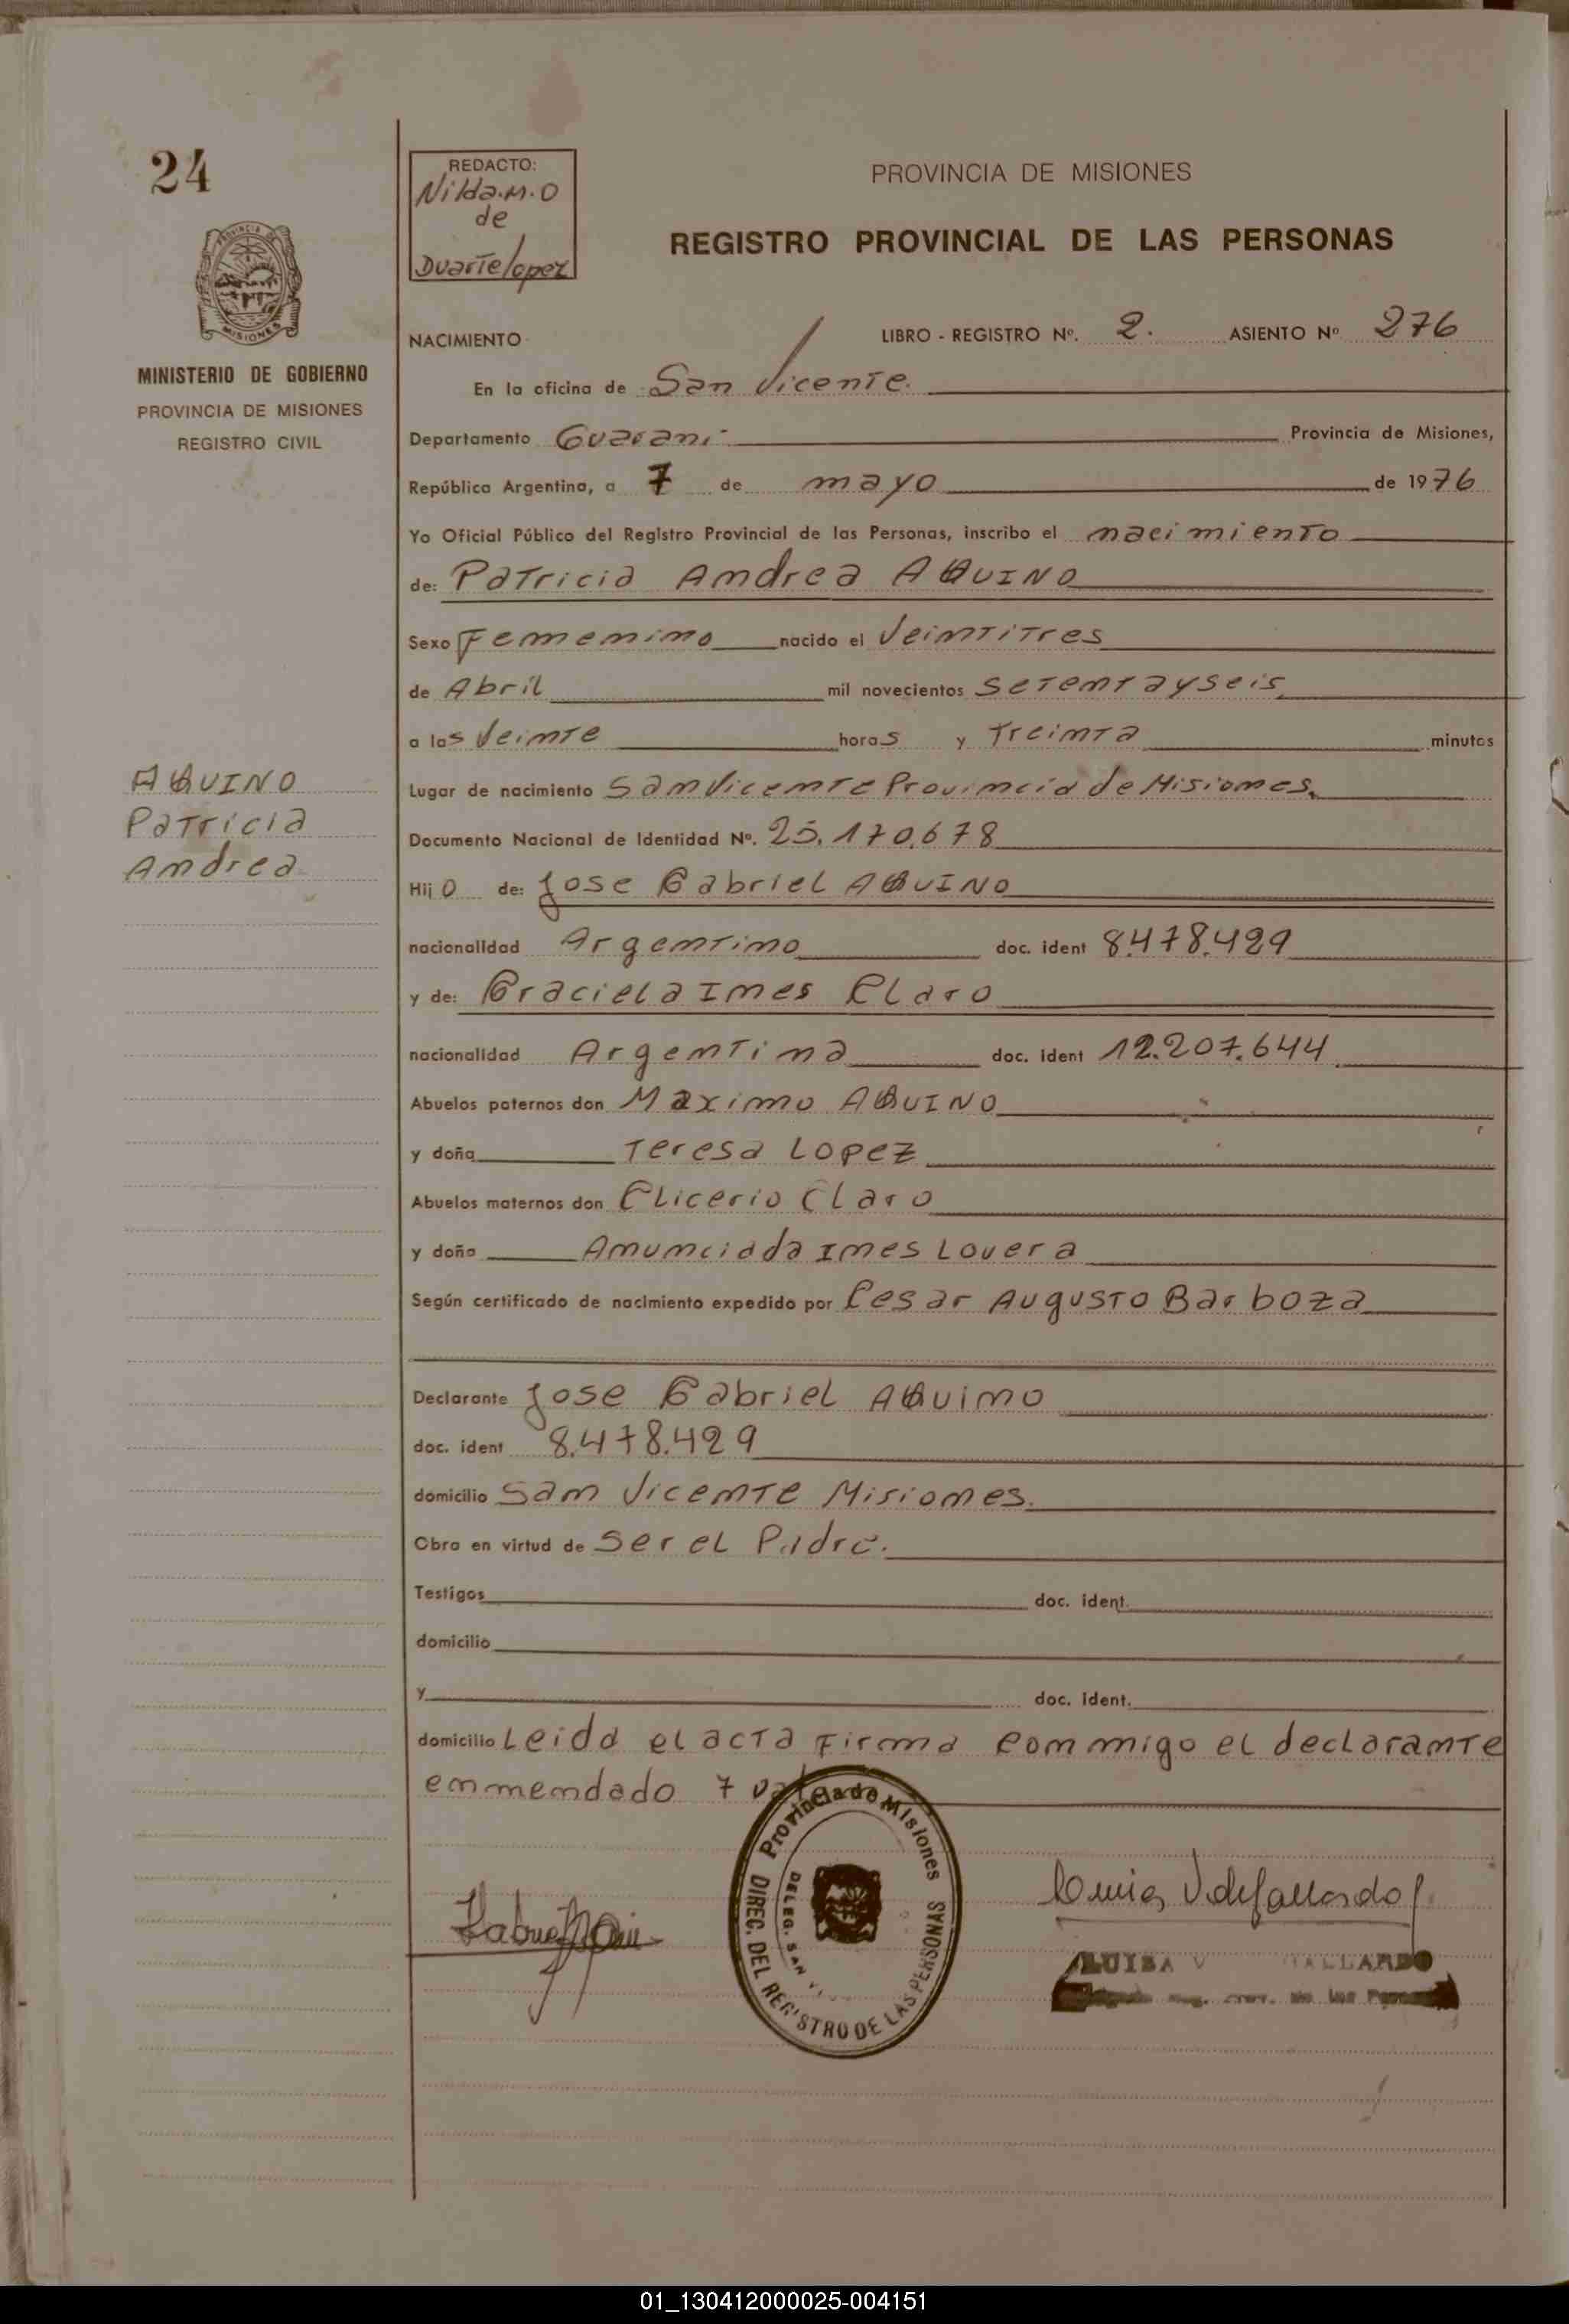 24
REDACTO:
Nilda.M.O
de
Duarte Lopez
PROVINCIA DE MISIONES
REGISTRO PROVINCIAL DE LAS PERSONAS
PROVINCIA DE
MISIONES
MINISTERIO DE GOBIERNO
PROVINCIA DE MISIONES
REGISTRO CIVIL
NACIMIENTO LIBRO - REGISTRO Nº. 2. ASIENTO Nº 276
En la oficina de San Vicente.
Departamento Guarani Provincia de Misiones,
República Argentina, a 7 de mayo de 1976
Yo Oficial Público del Registro Provincial de las Personas, inscribo el nacimiento
de: Patricia Andrea AQUINO
Sexo Femenino nacido el Veintitres
de Abril mil novecientos setentayseis
a las Veinte horas y Treinta minutos
AQUINO
Patricia
Andrea
Lugar de nacimiento San Vicente Provincia de Misiones.
Documento Nacional de Identidad Nº. 25.170.678
Hijo de: Jose Gabriel AQUINO
nacionalidad Argentino doc. ident 8.478.429
y de: Graciela Ines Claro
nacionalidad Argentina doc. ident 12.207.644
Abuelos paternos don Maximo AQUINO
y doña Teresa Lopez
Abuelos maternos don Clicerio Claro
y doña Anunciada Ines Lovera
Según certificado de nacimiento expedido por Cesar Augusto Barboza
Declarante Jose Gabriel AQuino
doc. ident 8.478.429
domicilio San Vicente Misiones.
Obra en virtud de Ser el Padre.
Testigos doc. ident.
domicilio
y doc. ident.
domicilio Leida el acta Firma conmigo el declarante
enmendado 7 vale
Provincia de Misiones
DIREC. DEL REGISTRO DE LAS PERSONAS
DELEG. SAN
LUISA V GALLARDO
01_130412000025-004151